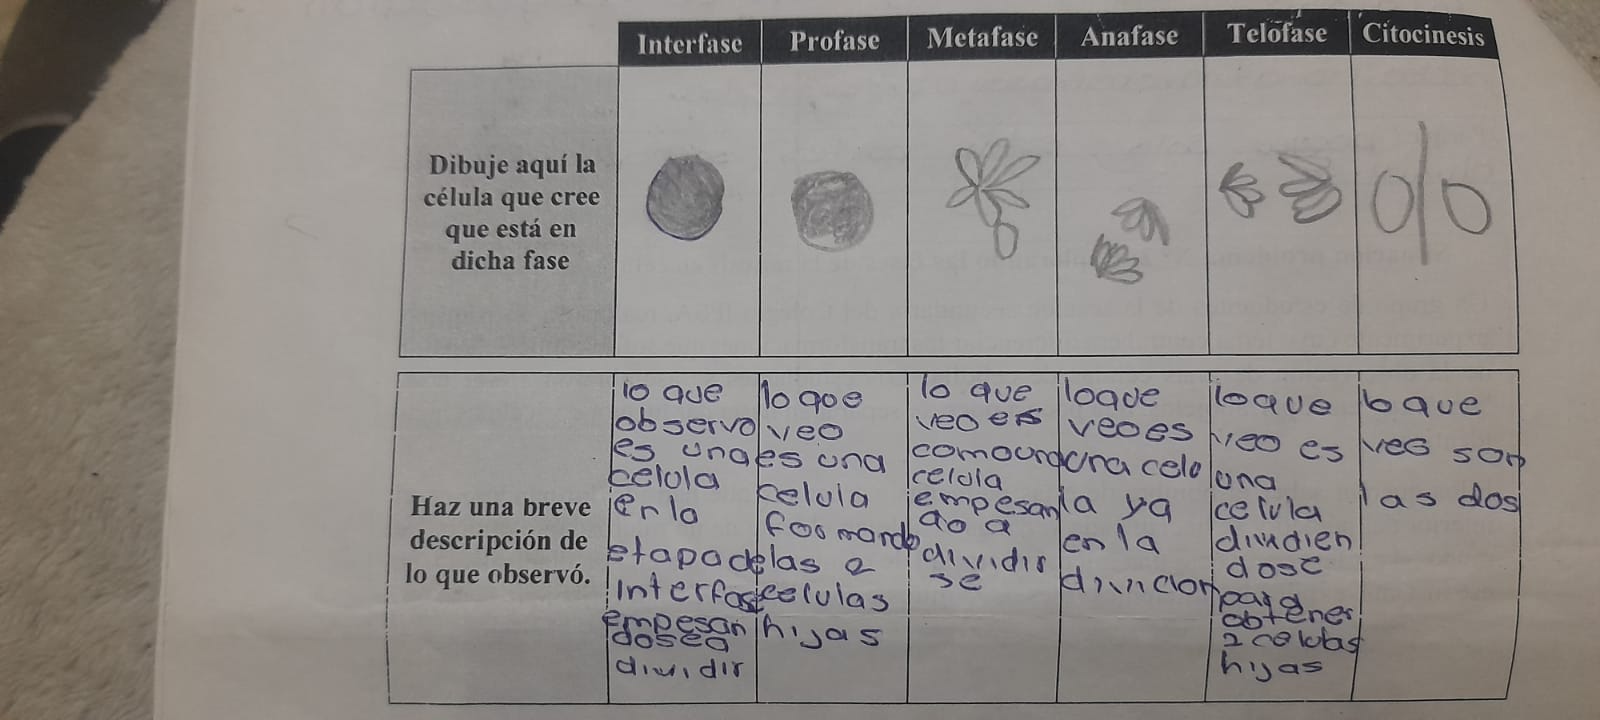 Interfase Profase Metafase Anafase Telofase Citocinesis
Dibuje aquí la
célula que cree
que está en
dicha fase
Haz una breve
descripción de
lo que observó.
lo que
observo
es una
celula
en la
etapa de
Interfase
empesan
dosea
dividir
lo que
veo
es una
celula
formando
las 2
celulas
hijas
lo que
veo es
como una
celula
empesan
do a
dividir
se
loque
veo es
una celu
la ya
en la
divicion
loque
veo es
una
celula
dividien
dose
para
obtener
2 celulas
hijas
lo que
veo son
las dos